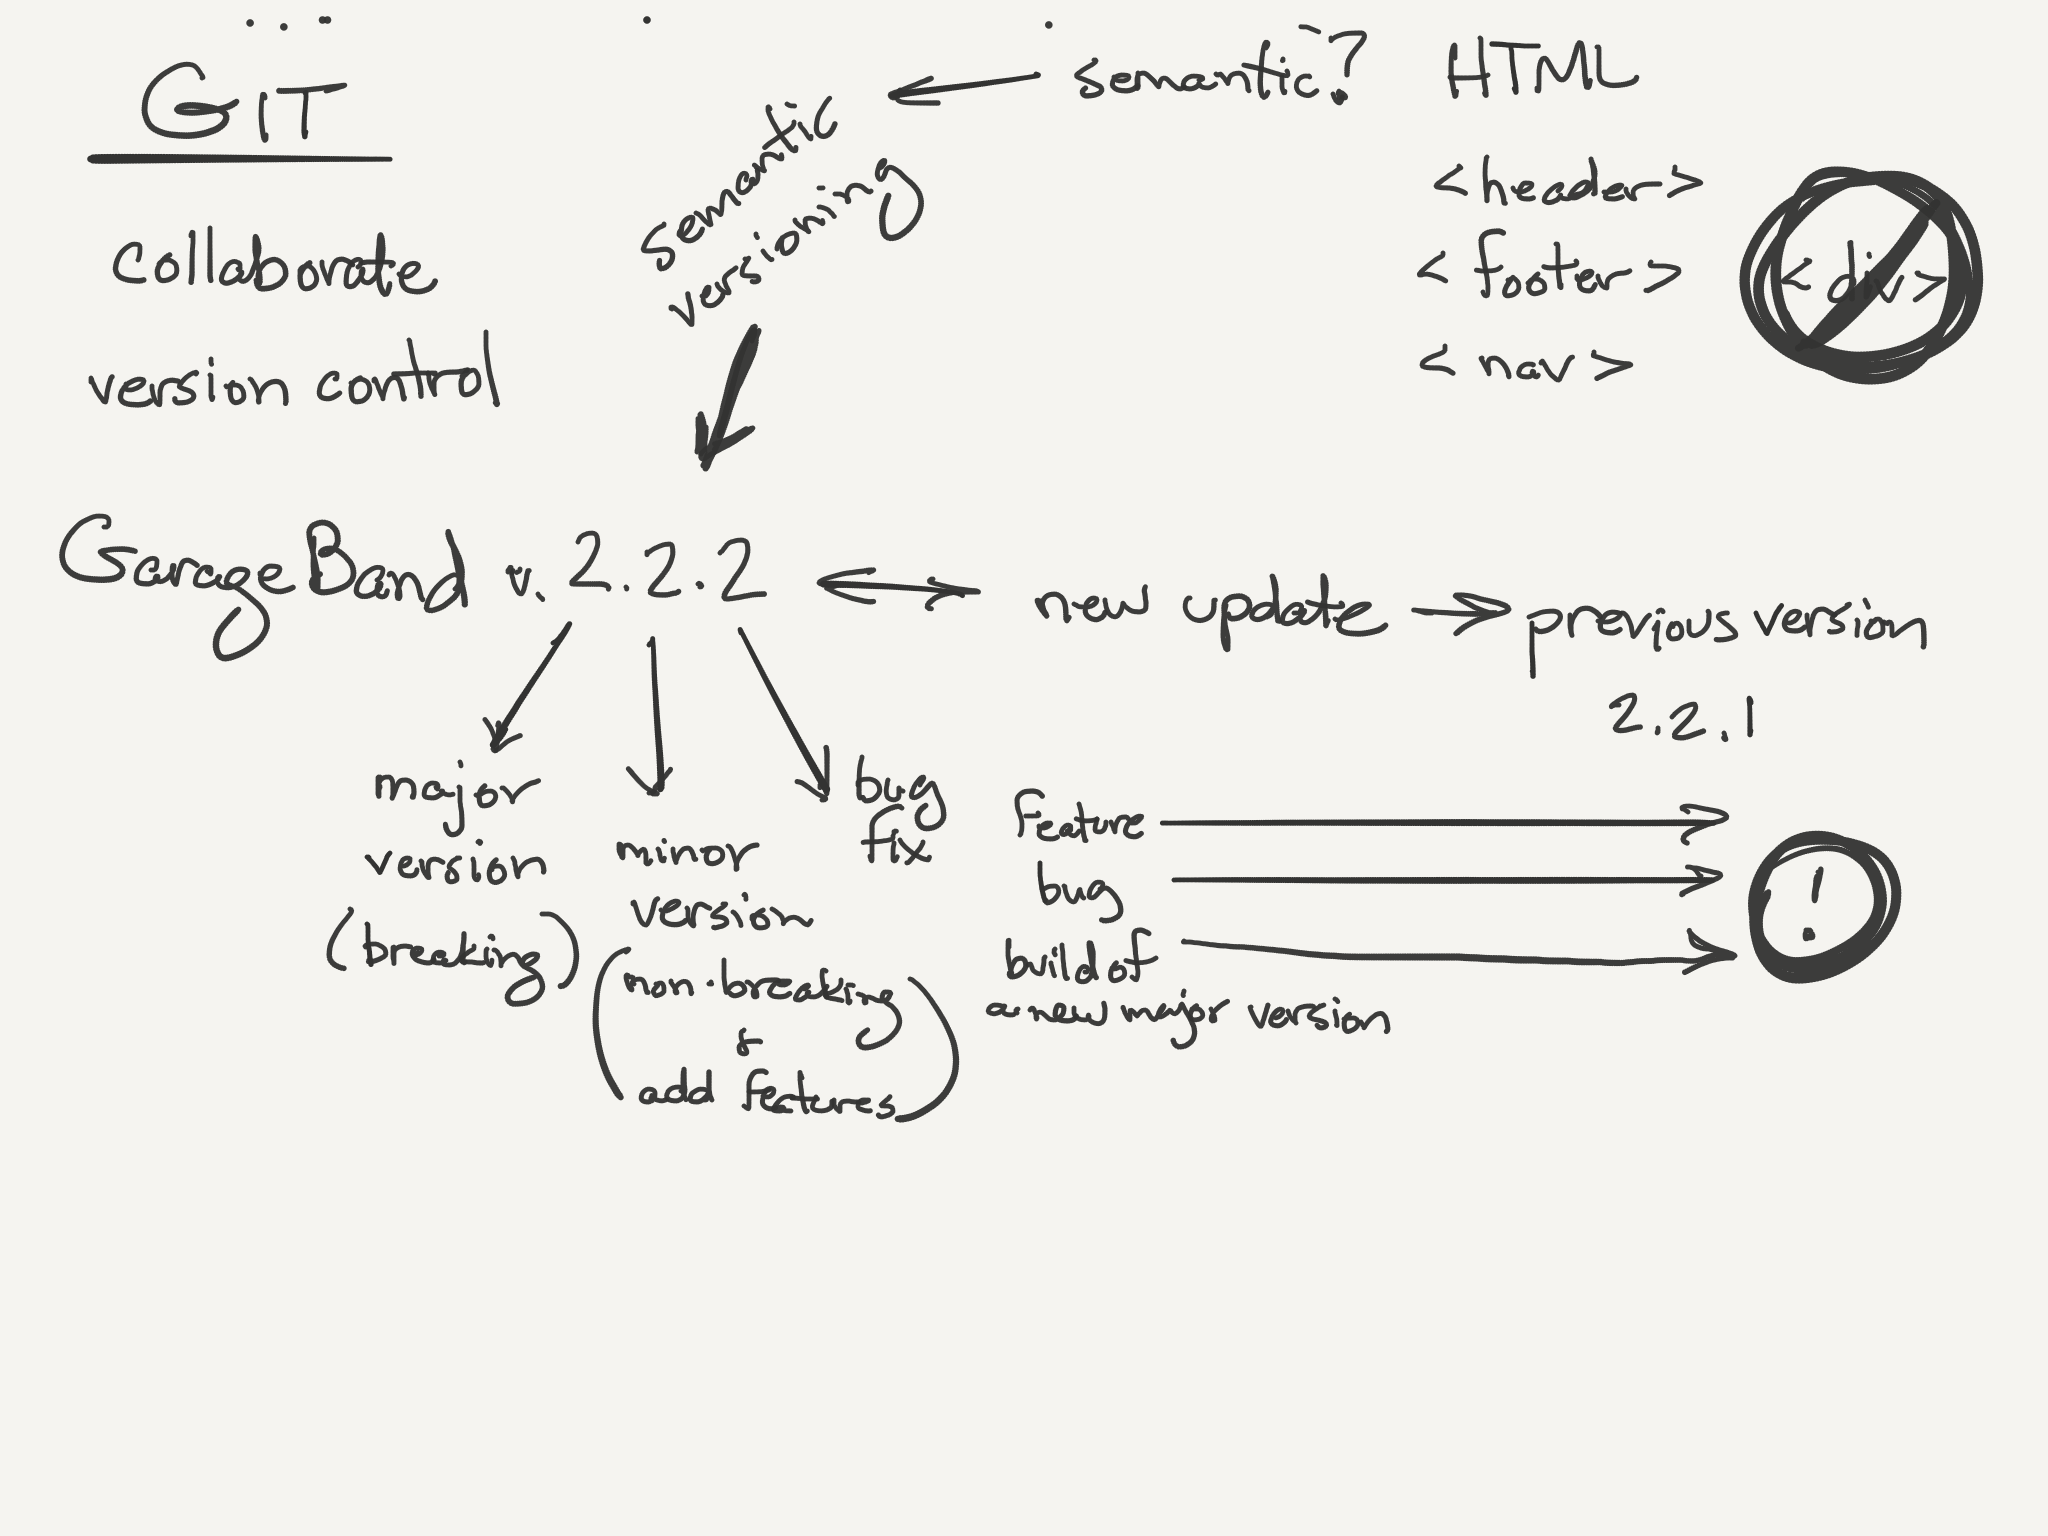 GIT
collaborate
version control
semantic
versioning
semantic?
HTML
<header>
<footer>
<nav>
<div>
GarageBand v. 2.2.2
new update
previous version
2.2.1
major
version
(breaking)
minor
version
(non-breaking
&
add features)
bug
fix
feature
bug
build of
a new major version
!